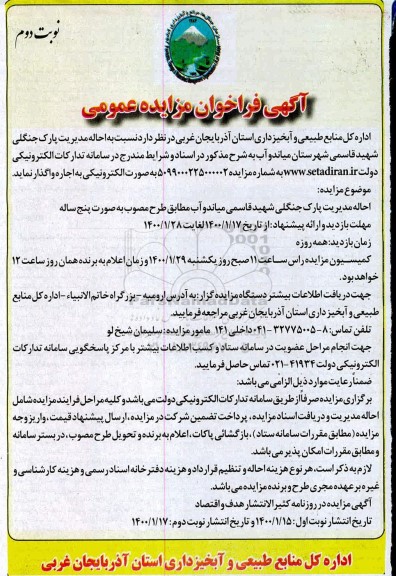 نوبت دوم
آگهی فراخوان مزایده عمومی
اداره کل منابع طبیعی و آبخیزداری استان آذربایجان غربی در نظر دارد نسبت به احاله مدیریت پارک جنگلی
شهید قاسمی شهرستان میاندوآب به شرح مذکور در اسناد و شرایط مندرج در سامانه تدارکات الکترونیکی
دولت www.setadiran.ir به شماره مزایده ۵۰۹۹۰۰۰۲۲۵۰۰۰۰۰۲ به صورت الکترونیکی به اجاره واگذار نماید.
موضوع مزایده:
احاله مدیریت پارک جنگلی شهید قاسمی میاندوآب مطابق طرح مصوب به صورت پنج ساله
مهلت بازدید و ارائه پیشنهاد: از تاریخ ۱۴۰۰/۱/۱۷ لغایت ۱۴۰۰/۱/۲۸
زمان بازدید: همه روزه
کمیسیون مزایده راس ساعت ۱۱ صبح روز یکشنبه ۱۴۰۰/۱/۲۹ و زمان اعلام به برنده همان روز ساعت ۱۲
خواهد بود.
جهت دریافت اطلاعات بیشتر دستگاه مزایده گزار: به آدرس ارومیه - بزرگراه خاتم الانبیاء - اداره کل منابع
طبیعی و آبخیزداری استان آذربایجان غربی مراجعه فرمایید.
تلفن تماس: ۸-۳۲۷۷۵۰۰۵-۰۴۱ داخلی ۱۴۱ مامور مزایده: سلیمان شیخ لو
جهت انجام مراحل عضویت در سامانه ستاد و کسب اطلاعات بیشتر با مرکز پاسخگویی سامانه تدارکات
الکترونیکی دولت ۴۱۹۳۴-۰۲۱ تماس حاصل فرمایید.
ضمناً رعایت موارد ذیل الزامی می باشد:
برگزاری مزایده صرفاً از طریق سامانه تدارکات الکترونیکی دولت می باشد و کلیه مراحل فرایند مزایده شامل
احاله مدیریت و دریافت اسناد مزایده، پرداخت تضمین شرکت در مزایده، ارسال پیشنهاد قیمت، واریز وجه
مزایده (مطابق مقررات سامانه ستاد)، بازگشائی پاکات، اعلام به برنده و تحویل طرح مصوب، در بستر سامانه
و مطابق مقررات امکان پذیر می باشد.
لازم به ذکر است، هر نوع هزینه احاله و تنظیم قرارداد و هزینه دفترخانه اسناد رسمی و هزینه کارشناسی و
غیره بر عهده مجری طرح و برنده مزایده می باشد.
آگهی مزایده در روزنامه کثیر الانتشار هدف و اقتصاد
تاریخ انتشار نوبت اول: ۱۴۰۰/۱/۱۵ و تاریخ انتشار نوبت دوم: ۱۴۰۰/۱/۱۷
اداره کل منابع طبیعی و آبخیزداری استان آذربایجان غربی